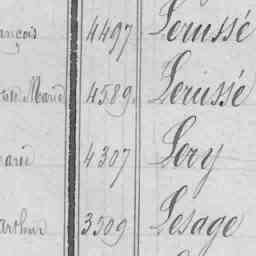 ançois 4497 Lerussé
Marie 4589 Lerussé
arie 4307 Lery
arthur 3509 Lesage